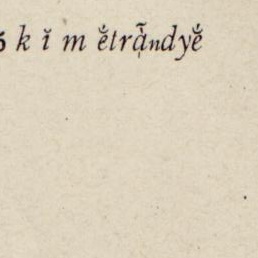 k ĭ m ĕ́trą̃́ndyĕ́